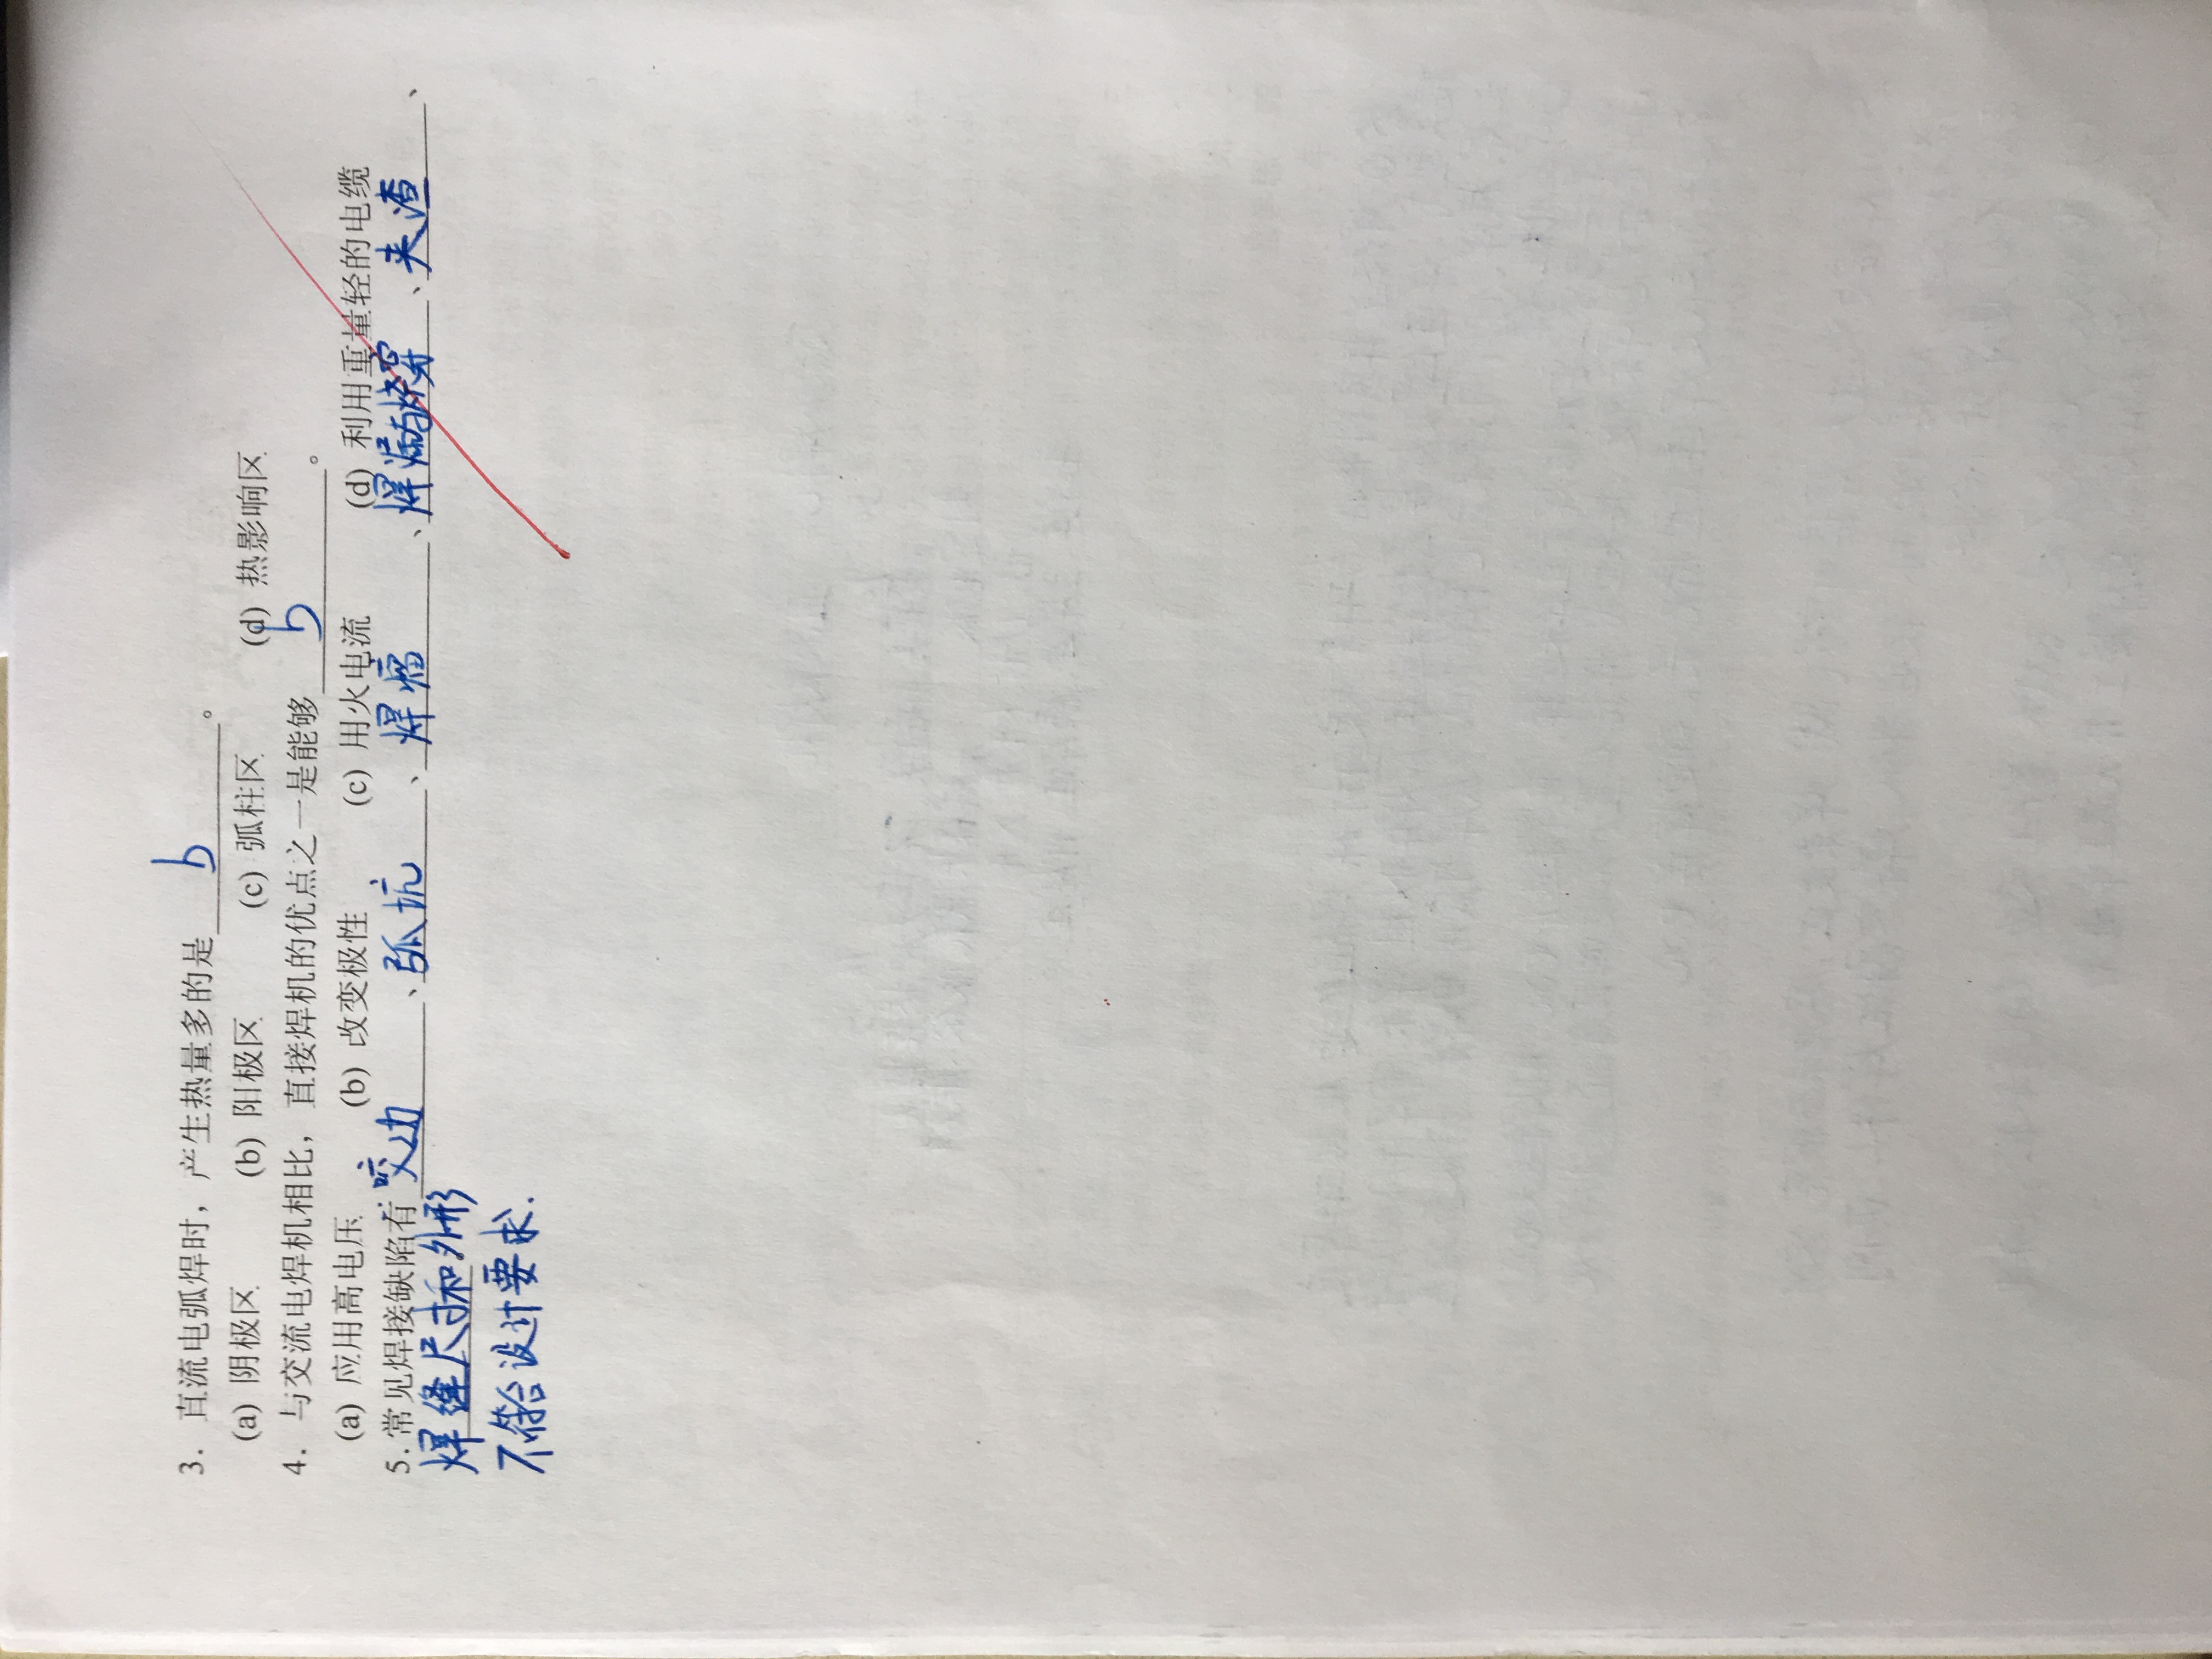 3. 直流电弧焊时，产生热量多的是 b 。
(a) 阴极区 (b) 阳极区 (c) 弧柱区 (d) 热影响区
4. 与交流电焊机相比，直接焊机的优点之一是能够 b 。
(a) 应用高电压 (b) 改变极性 (c) 用火电流 (d) 利用重量轻的电缆
5. 常见焊接缺陷有 咬边 、 弧坑 、 焊瘤 、 焊漏与烧穿 、 夹渣 、
焊缝尺寸和外形
不符合设计要求.